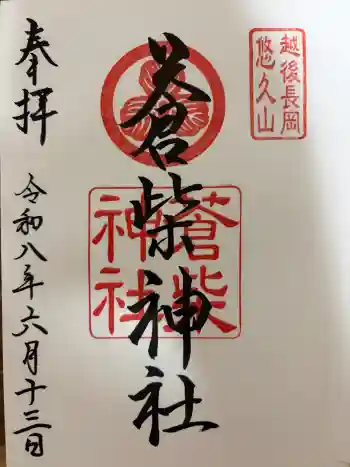 越後長岡
悠久山
蒼柴神社
蒼柴
神社
奉拝
令和八年六月十三日